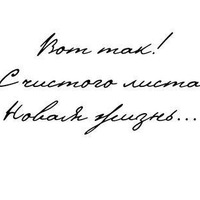 Вот так!
С чистого листа
Новая жизнь...